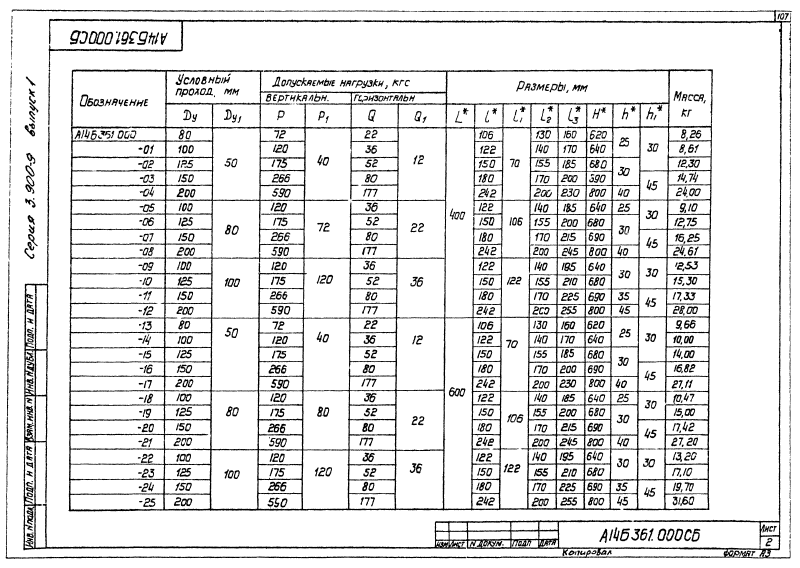 107
А14Б361.000СБ
Серия 3.900-9 выпуск 1
Обозначение | Условный проход, мм | Допускаемые нагрузки, кгс | Размеры, мм | Масса, кг
вертикальн. | горизонтальн
Dу | Dу₁ | P | P₁ | Q | Q₁ | L* | l* | l₁* | l₂* | l₃* | H* | h* | h₁*
А14Б361.000 | 80 | 50 | 72 | 40 | 22 | 12 | 400 | 106 | 70 | 130 | 160 | 620 | 25 | 30 | 8,26
-01 | 100 | 120 | 36 | 122 | 140 | 170 | 640 | 8,61
-02 | 125 | 175 | 52 | 150 | 155 | 185 | 680 | 30 | 12,30
-03 | 150 | 266 | 80 | 180 | 170 | 200 | 690 | 45 | 14,74
-04 | 200 | 590 | 177 | 242 | 200 | 230 | 800 | 40 | 24,00
-05 | 100 | 80 | 120 | 72 | 36 | 22 | 122 | 106 | 140 | 185 | 640 | 25 | 30 | 9,10
-06 | 125 | 175 | 52 | 150 | 155 | 200 | 680 | 30 | 12,75
-07 | 150 | 266 | 80 | 180 | 170 | 215 | 690 | 45 | 16,25
-08 | 200 | 590 | 177 | 242 | 200 | 245 | 800 | 40 | 24,61
-09 | 100 | 100 | 120 | 120 | 36 | 36 | 122 | 122 | 140 | 195 | 640 | 30 | 30 | 12,53
-10 | 125 | 175 | 52 | 150 | 155 | 210 | 680 | 15,30
-11 | 150 | 266 | 80 | 180 | 170 | 225 | 690 | 35 | 45 | 17,33
-12 | 200 | 590 | 177 | 242 | 200 | 255 | 800 | 45 | 28,00
-13 | 80 | 50 | 72 | 40 | 22 | 12 | 600 | 106 | 70 | 130 | 160 | 620 | 25 | 30 | 9,66
-14 | 100 | 120 | 36 | 122 | 140 | 170 | 640 | 10,00
-15 | 125 | 175 | 52 | 150 | 155 | 185 | 680 | 30 | 14,00
-16 | 150 | 266 | 80 | 180 | 170 | 200 | 690 | 45 | 16,82
-17 | 200 | 590 | 177 | 242 | 200 | 230 | 800 | 40 | 27,11
-18 | 100 | 80 | 120 | 80 | 36 | 22 | 122 | 106 | 140 | 185 | 640 | 25 | 30 | 10,47
-19 | 125 | 175 | 52 | 150 | 155 | 200 | 680 | 30 | 15,00
-20 | 150 | 266 | 80 | 180 | 170 | 215 | 690 | 45 | 17,42
-21 | 200 | 590 | 177 | 242 | 200 | 245 | 800 | 40 | 27,20
-22 | 100 | 100 | 120 | 120 | 36 | 36 | 122 | 122 | 140 | 195 | 640 | 30 | 30 | 13,20
-23 | 125 | 175 | 52 | 150 | 155 | 210 | 680 | 17,10
-24 | 150 | 266 | 80 | 180 | 170 | 225 | 690 | 35 | 45 | 19,70
-25 | 200 | 550 | 177 | 242 | 200 | 255 | 800 | 45 | 31,60
Инв. N подл. Подп. и дата Взам. инв. N Инв. N дубл. Подп. и дата
Изм Лист N докум. Подп Дата
А14Б361.000СБ
Лист
2
Копировал
Формат А3